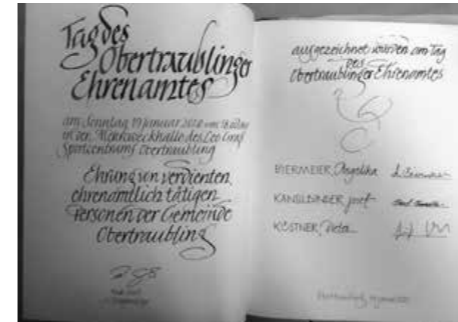 Tag des
Obertraublinger
Ehrenamtes
am Sonntag 19. Januar
in der Mehrzweckhalle des Leo Graß
Sportzentrums Obertraubling
Ehrung von verdienten,
ehrenamtlich tätigen
Personen der Gemeinde
Obertraubling
ausgezeichnet wurden am Tag
des
Obertraublinger Ehrenamtes
BIERMEIER, Angelika
Josef
KÖSTNER, Dieter
Obertraubling, 19. Januar